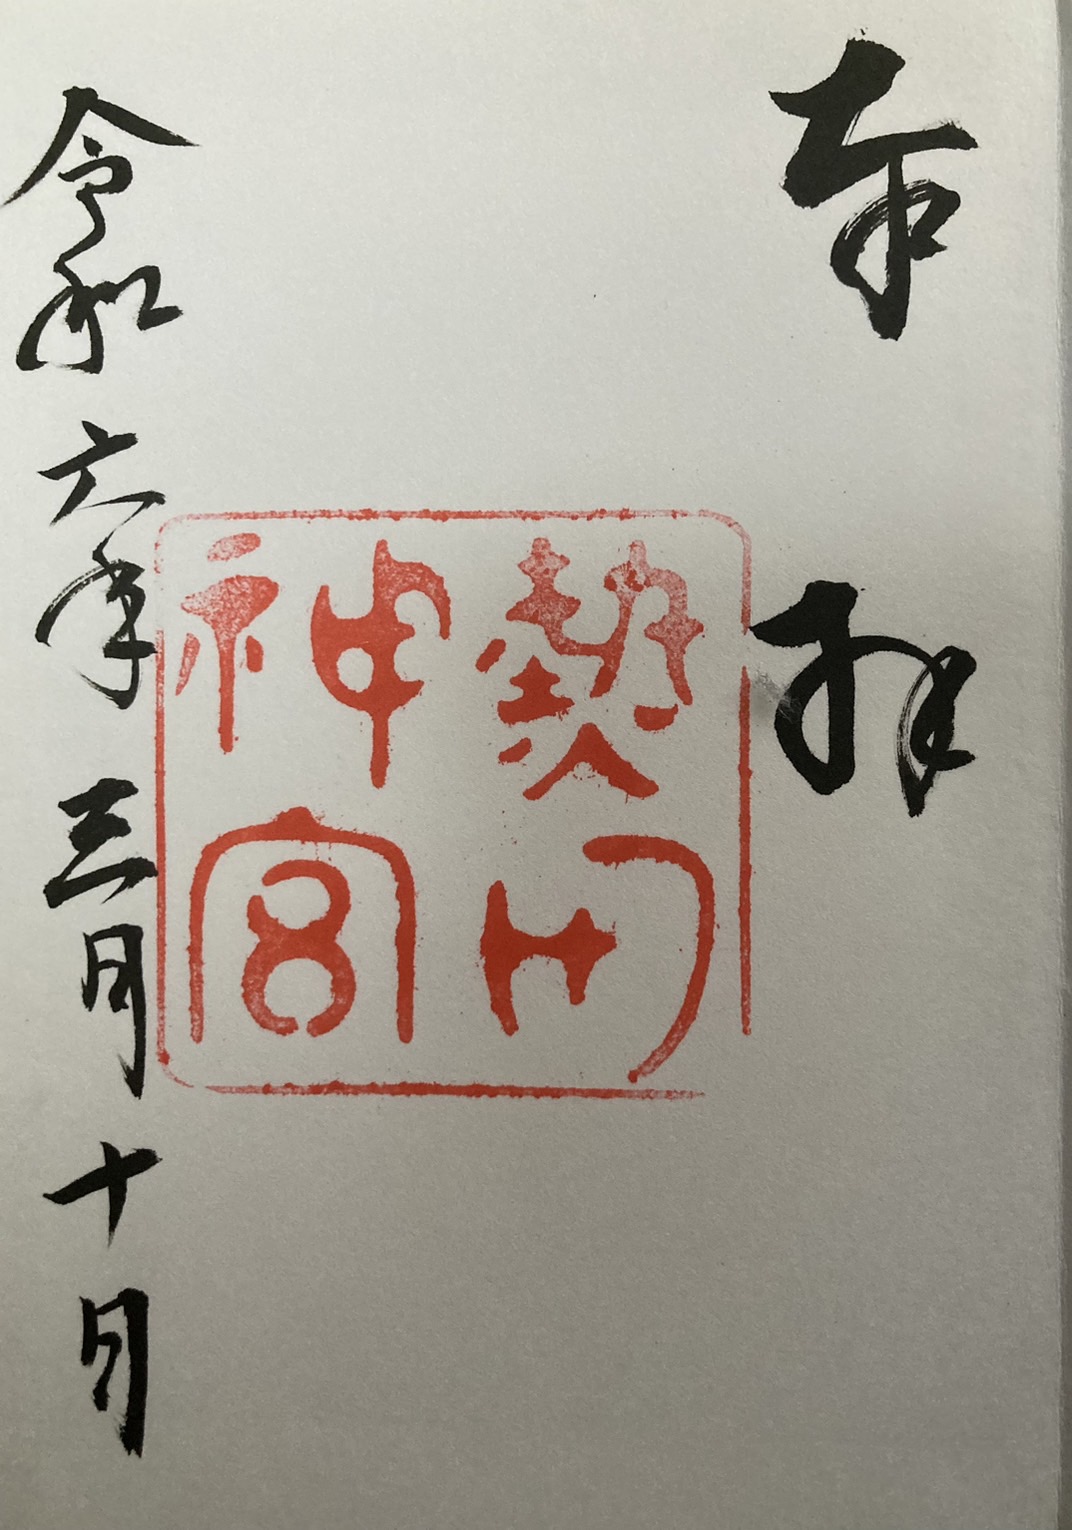 奉拝
熱田
神宮
令和六年三月十日